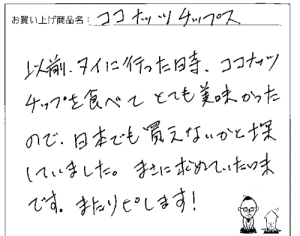 お買い上げ商品名: ココナッツチップス
以前、タイに行った時、ココナッツ
チップを食べてとても美味かった
ので、日本でも買えないかと探
していました。まさに求めていた味
です。またリピします!